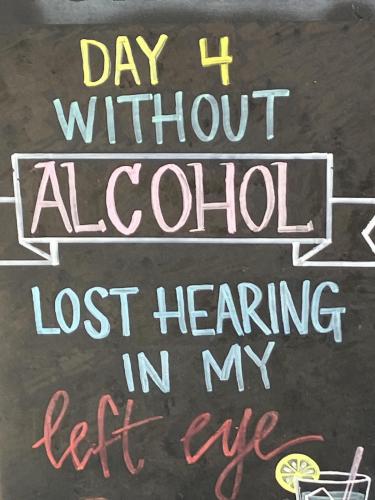 DAY 4
WITHOUT
ALCOHOL
LOST HEARING
IN MY
left eye